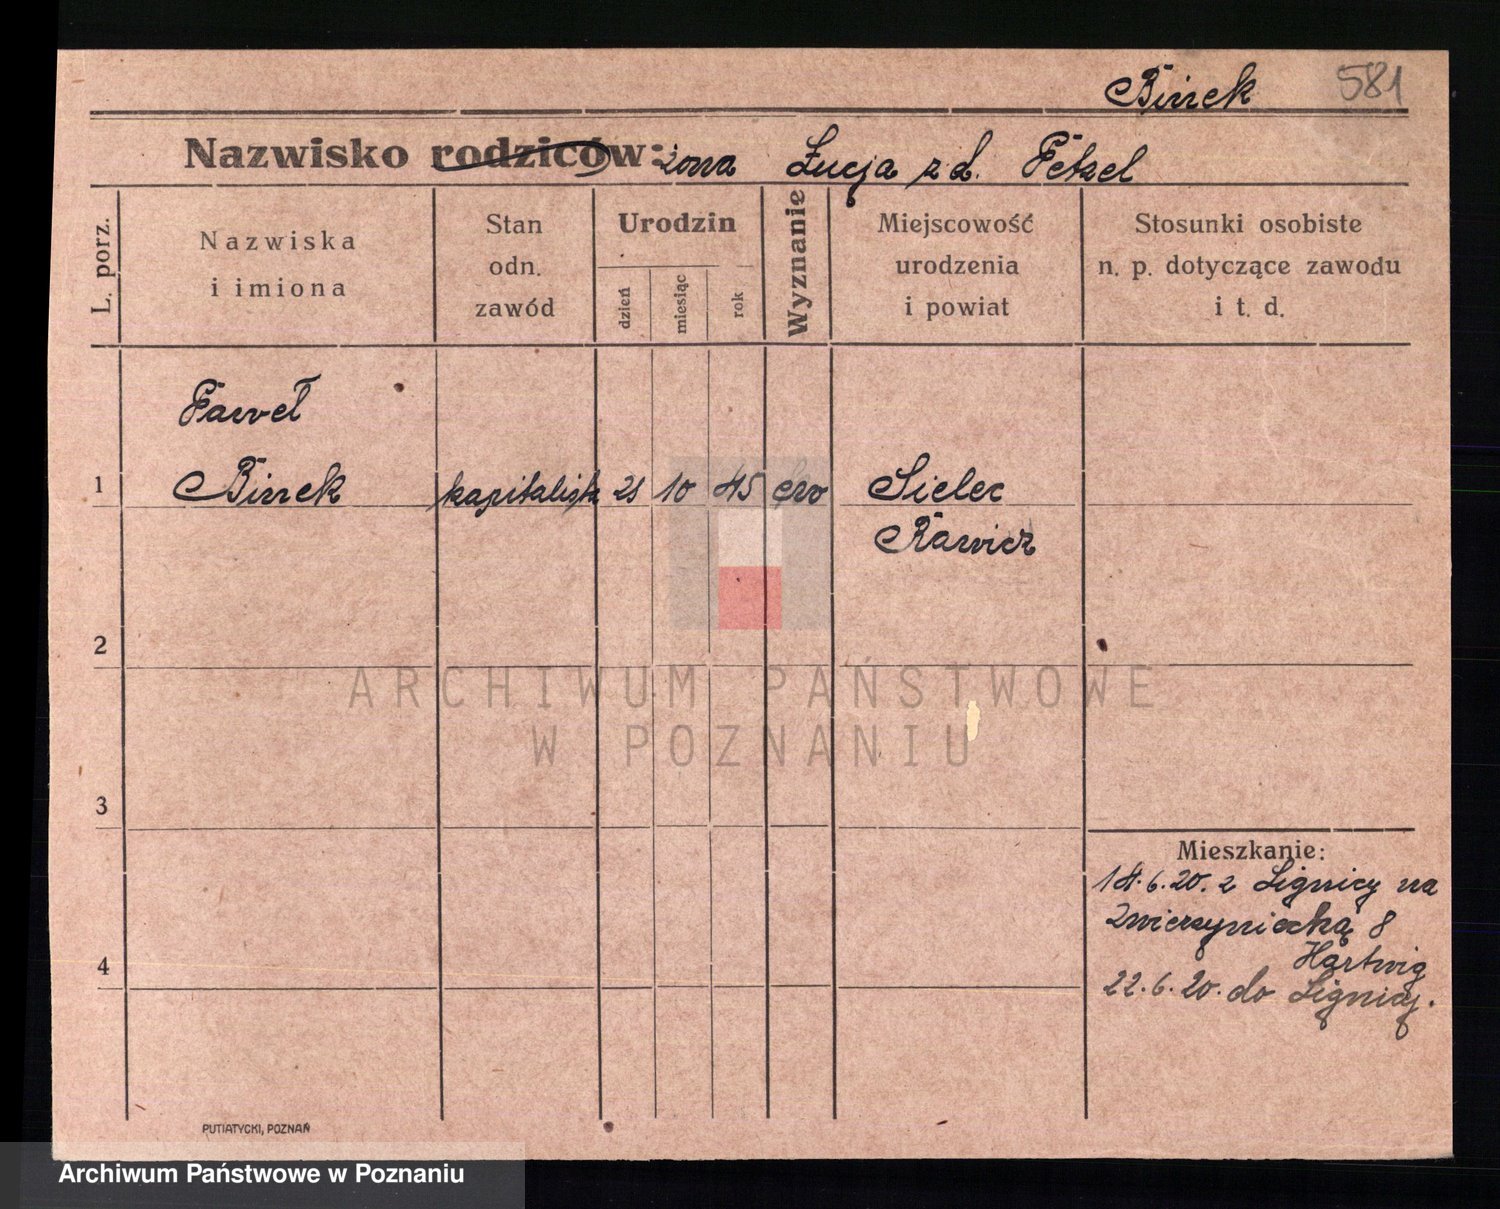 Birrek 581
Nazwisko rodziców: żona Łucja z d. Petzel
L. porz.
Nazwiska
i imiona
Stan
odn.
zawód
Urodzin
dzień
miesiąc
rok
Wyznanie
Miejscowość
urodzenia
i powiat
Stosunki osobiste
n. p. dotyczące zawodu
i t. d.
Paweł
1 Birrek kapitalista 21 10 45 ew Sielec
Rawicz
2
ARCHIWUM PAŃSTWOWE
W POZNANIU
3
Mieszkanie:
14.6.20. z Lignicy na
Zwierzyniecką 8
Hartwig
4
22.6.20. do Lignicy.
PUTIATYCKI, POZNAŃ
Archiwum Państwowe w Poznaniu